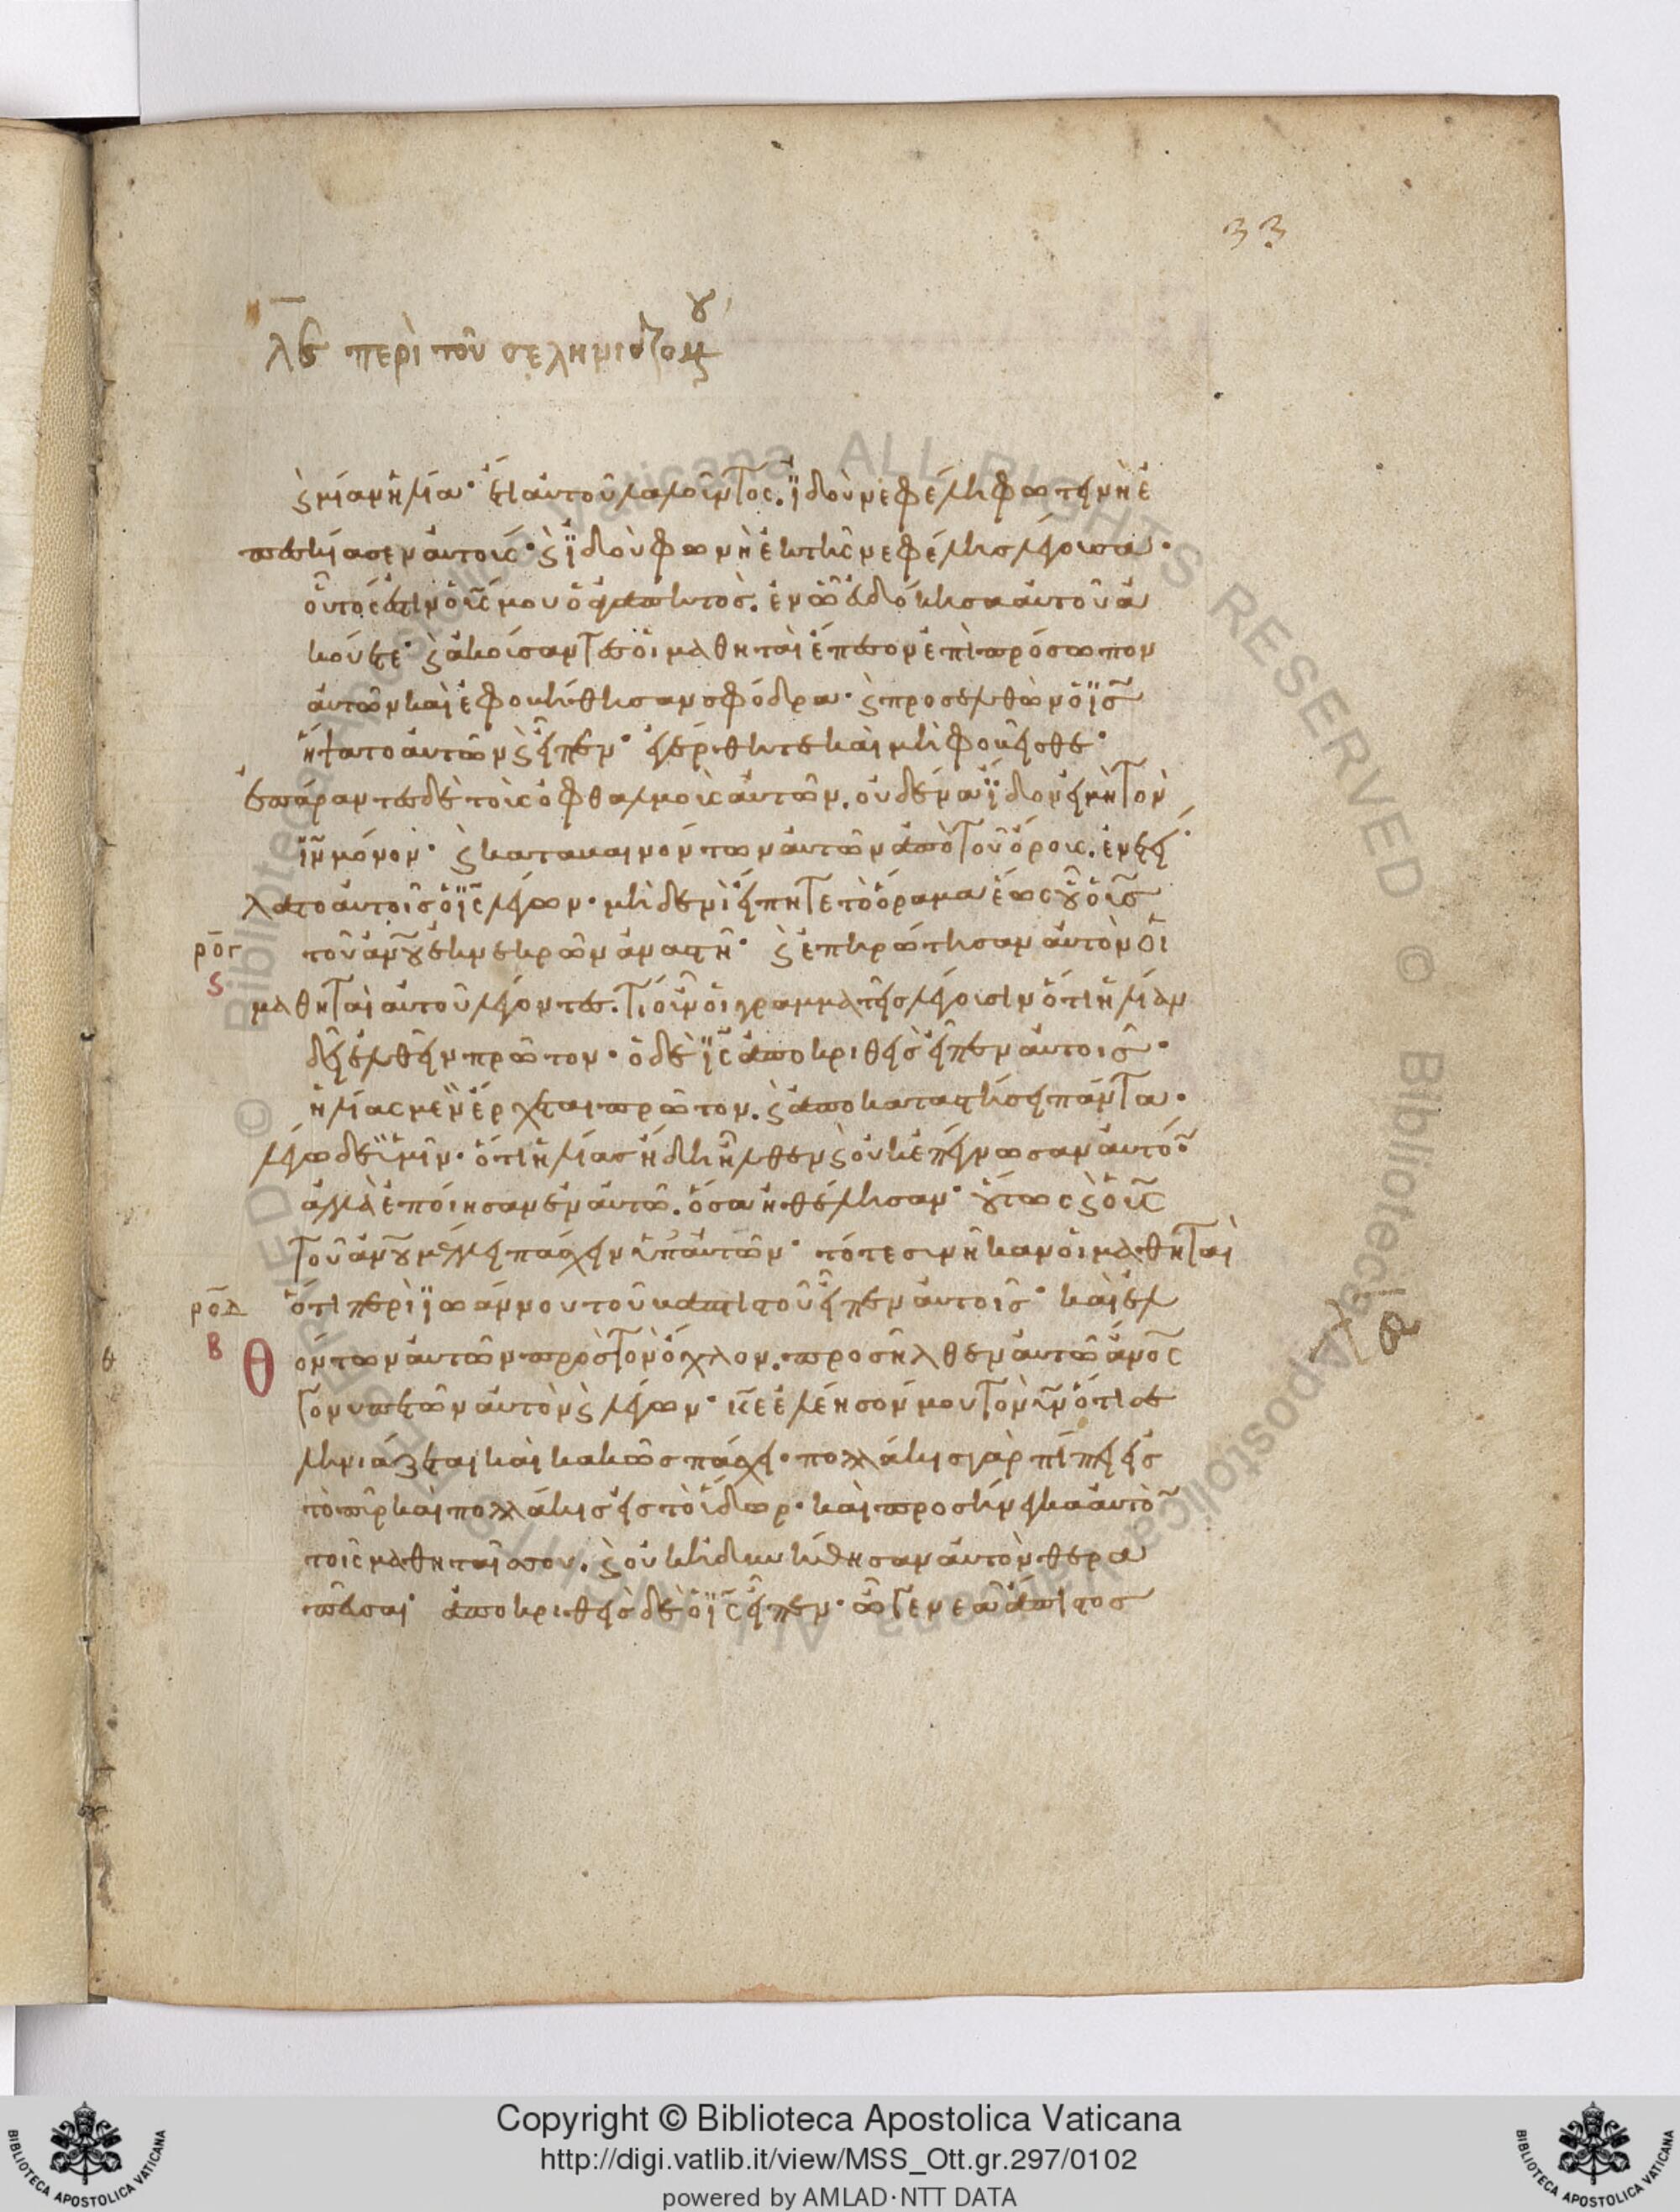 33
λβ περὶ τοῦ σεληνιαζομένου
ϗ μίαν ἡλία· ἔτι αὐτοῦ λαλοῦντος. ἰδοὺ νεφέλη φωτεινὴ ἐ
πεσκίασεν αὐτούς· ϗ ἰδοὺ φωνὴ ἐκ τῆς νεφέλης λέγουσα·
οὗτός ἐστιν ὁ υ̅ς̅ μου ὁ ἀγαπητός. ἐν ᾧ εὐδόκησα αὐτοῦ ἀ
κούετε· ϗ ἀκούσαντες οἱ μαθηταὶ ἔπεσον ἐπὶ πρόσωπον
αὐτῶν καὶ ἐφοβήθησαν σφόδρα· ϗ προσελθὼν ὁ ι̅ς̅
ἥψατο αὐτῶν ϗ εἶπεν· ἐγέρθητε καὶ μὴ φοβεῖσθε·
ἐπάραντες δὲ τοὺς ὀφθαλμοὺς αὐτῶν. οὐδένα ἴδον εἰ μὴ τὸν
ι̅ν̅ μόνον· ϗ καταβαινόντων αὐτῶν ἀπὸ τοῦ ὄρους. ἐνετεί
λατο αὐτοῖς ὁ ι̅ς̅ λέγων· μηδενὶ εἴπητε τὸ ὅραμα ἕως οὗ ὁ υ̅ς̅
ρογ τοῦ α̅ν̅ο̅υ̅ ἐκ νεκρῶν ἀναστῇ· ϗ ἐπηρώτησαν αὐτὸν οἱ
ς μαθηταὶ αὐτοῦ λέγοντες. τί οὖν οἱ γραμματεῖς λέγουσιν ὅτι ἡλίαν
δεῖ ἐλθεῖν πρῶτον· ὁ δὲ ι̅ς̅ ἀποκριθεὶς εἶπεν αὐτοῖς·
ἡλίας μὲν ἔρχεται πρῶτον. ϗ ἀποκαταστήσει πάντα·
λέγω δὲ ὑμῖν· ὅτι ἡλίας ἤδη ἦλθεν ϗ οὐκ ἐπέγνωσαν αὐτόν
ἀλλὰ ἐποίησαν ἐν αὐτῷ. ὅσα ἠθέλησαν· οὕτως ϗ ὁ υ̅ς̅
τοῦ α̅ν̅ο̅υ̅ μέλλει πάσχειν ὑπ' αὐτῶν· τότε συνῆκαν οἱ μαθηταὶ
ροδ ὅτι περὶ ἰωάννου τοῦ βαπτιστοῦ εἶπεν αὐτοῖς· καὶ ἐλ
β θόντων αὐτῶν πρὸς τὸν ὄχλον. προσῆλθεν αὐτῷ α̅ν̅ο̅ς̅
γονυπετῶν αὐτὸν ϗ λέγων· κ̅ε̅ ἐλέησόν μου τὸν υ̅ν̅ ὅτι σε
ληνιάζεται καὶ κακῶς πάσχει· πολλάκις γὰρ πίπτει εἰς
τὸ πῦρ καὶ πολλάκις εἰς τὸ ὕδωρ· καὶ προσήνεγκα αὐτὸν
τοῖς μαθηταῖς σου. ϗ οὐκ ἠδυνήθησαν αὐτὸν θερα
πεῦσαι· ἀποκριθεὶς δὲ ὁ ι̅ς̅ εἶπεν· ὦ γενεὰ ἄπιστος
Copyright © Biblioteca Apostolica Vaticana
http://digi.vatlib.it/view/MSS_Ott.gr.297/0102
powered by AMLAD·NTT DATA
BIBLIOTECA APOSTOLICA VATICANA
BIBLIOTECA APOSTOLICA VATICANA
© Biblioteca Apostolica Vaticana ALL RIGHTS RESERVED © Biblioteca Apostolica Vaticana ALL RIGHTS RESERVED